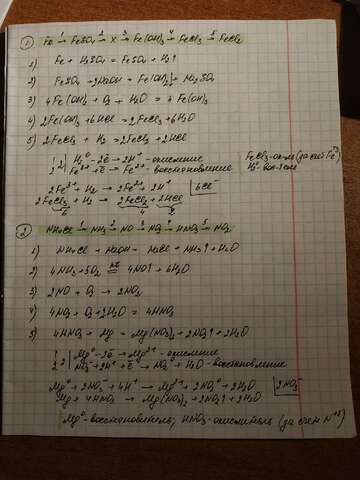 ① Fe →¹ FeSO₄ →² X →³ Fe(OH)₃ →⁴ FeCl₃ →⁵ FeCl₂
1) Fe + H₂SO₄ = FeSO₄ + H₂↑
2) FeSO₄ + 2NaOH = Fe(OH)₂↓ + Na₂SO₄
3) 4Fe(OH)₂ + O₂ + H₂O = 4Fe(OH)₃
4) 2Fe(OH)₃ + 6HCl = 2FeCl₃ + 6H₂O
5) 2FeCl₃ + H₂ = 2FeCl₂ + 2HCl
1 | 2 | H₂⁰ - 2ē → 2H⁺ - окисление
2 | Fe³⁺ + ē → Fe²⁺ - восстановление
FeCl₃ - ок-ль (за счёт Fe⁺³)
H₂⁰ - вос-ль
2Fe³⁺ + H₂ → 2Fe²⁺ + 2H⁺ | 6Cl⁻
2FeCl₃ + H₂ → 2FeCl₂ + 2HCl
6 4 2
② NH₄Cl →¹ NH₃ →² NO →³ NO₂ →⁴ HNO₃ →⁵ NO₂
1) NH₄Cl + NaOH = NaCl + NH₃↑ + H₂O
2) 4NH₃ + 5O₂ = 4NO↑ + 6H₂O
3) 2NO + O₂ → 2NO₂
4) 4NO₂ + O₂ + 2H₂O = 4HNO₃
5) 4HNO₃ + Mg = Mg(NO₃)₂ + 2NO₂↑ + 2H₂O
Mg⁰ - 2ē → Mg²⁺ - окисление
NO₃⁻ + 2H⁺ + ē → NO₂⁰ + H₂O - восстановление
Mg⁰ + 2NO₃⁻ + 4H⁺ → Mg²⁺ + 2NO₂⁰ + 2H₂O | 2NO₃⁻
Mg + 4HNO₃ → Mg(NO₃)₂ + 2NO₂↑ + 2H₂O
Mg⁰ - восстановитель, HNO₃ - окислитель (за счёт N⁺⁵)